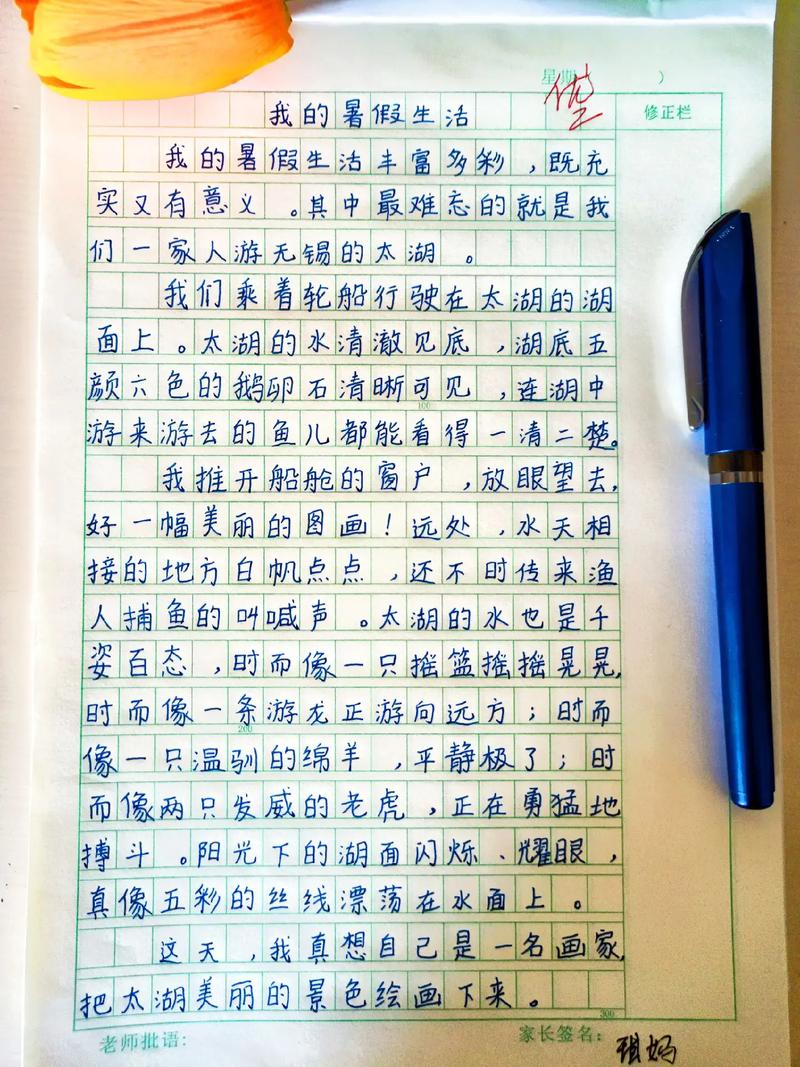 星期 )
优
修正栏
我的暑假生活
我的暑假生活丰富多彩，既充
实又有意义。其中最难忘的就是我
们一家人游无锡的太湖。
我们乘着轮船行驶在太湖的湖
面上。太湖的水清澈见底，湖底五
颜六色的鹅卵石清晰可见，连湖中
100
游来游去的鱼儿都能看得一清二楚。
我推开船舱的窗户，放眼望去，
好一幅美丽的图画！远处，水天相
接的地方白帆点点，还不时传来渔
人捕鱼的叫喊声。太湖的水也是千
姿百态，时而像一只摇篮摇摇晃晃，
时而像一条游龙正游向远方；时而
200
像一只温驯的绵羊，平静极了；时
而像两只发威的老虎，正在勇猛地
搏斗。阳光下的湖面闪烁、耀眼，
真像五彩的丝线漂荡在水面上。
这天，我真想自己是一名画家，
把太湖美丽的景色绘画下来。
300
老师批语:
家长签名: 琪妈